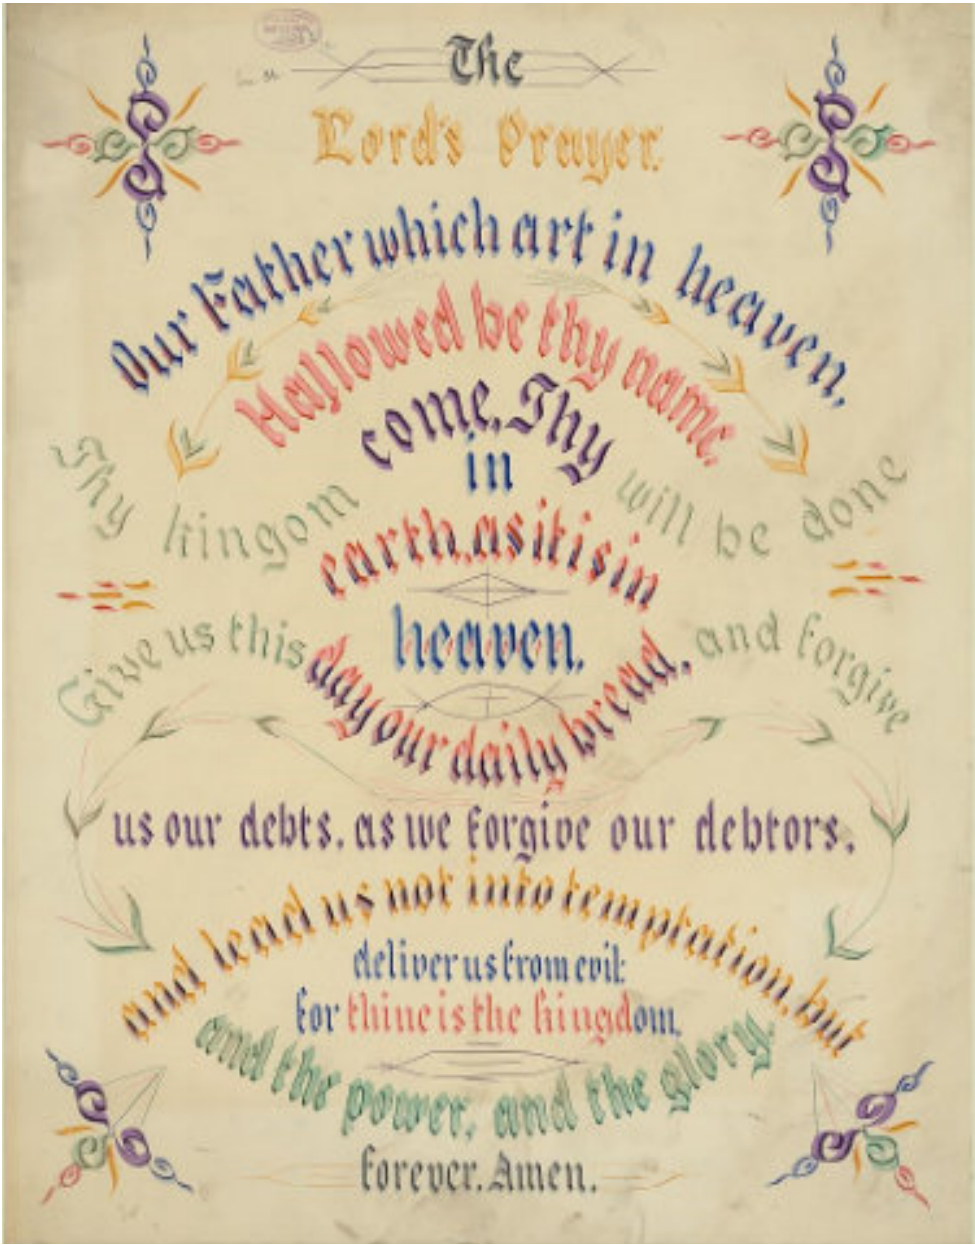 The
Lord's Prayer.
Our Father which art in heaven,
Hallowed be thy name.
Thy kingom come. Thy will be done
in
earth, as it is in
heaven.
Give us this day our daily bread, and forgive
us our debts, as we forgive our debtors.
and lead us not into temptation, but
deliver us from evil:
for thine is the kingdom,
and the power, and the glory.
forever. Amen.